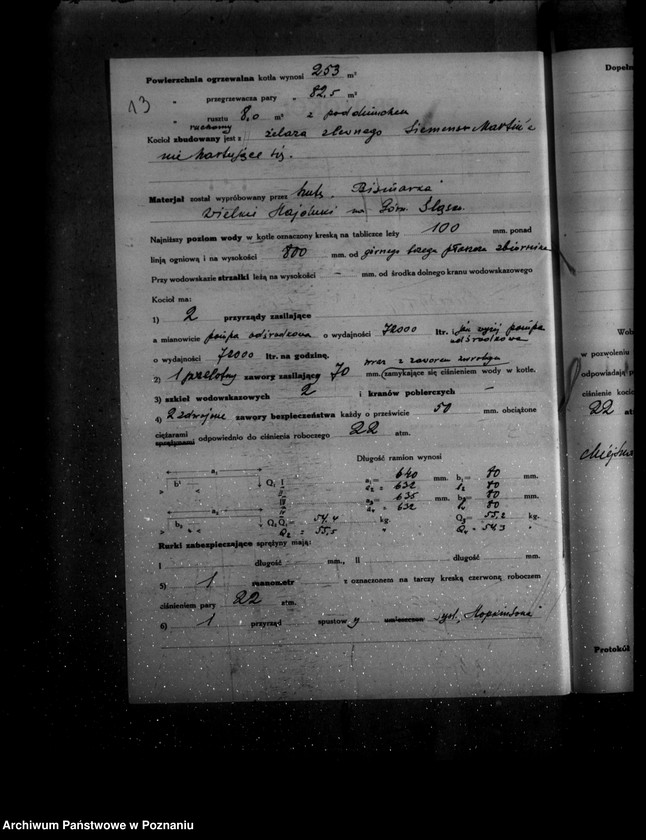 13
Powierzchnia ogrzewalna kotła wynosi 253 m²
" przegrzewacza pary " 82,5 m²
" rusztu 8,0 m² z poddmuchem
ruchomy
Kocioł zbudowany jest z żelaza zlewnego Siemensa Martin'a
nie hartujące się.
Materjał został wypróbowany przez hutę Bismarka
Wielkie Hajduki na Górn. Śląsku
Najniższy poziom wody w kotle oznaczony kreską na tabliczce leży 100 mm. ponad
linją ogniową i na wysokości 800 mm. od górnego brzegu płaszcza zbiornika
Przy wodowskazie strzałki leżą na wysokości — mm. od środka dolnego kranu wodowskazowego
Kocioł ma:
1) 2 przyrządy zasilające
a mianowicie pompa odśrodkowa o wydajności 72000 ltr. i jak wyżej pompa
odśrodkowa
o wydajności 72000 ltr. na godzinę.
oraz z zaworem zwrotnym
2) 1 przelotny zawory zasilające 70 mm. (zamykające się ciśnieniem wody w kotle.
3) szkieł wodowskazowych 2 i kranów pobierczych —
4) 2 zdwojone zawory bezpieczeństwa każdy o prześwicie 50 mm. obciążone
ciężarami
sprężynami odpowiednio do ciśnienia roboczego 22 atm.
Długość ramion wynosi
a₁ b¹ Q₁
a₁= 640 mm. b₁= 80 mm.
a₂ = 632 b₂ 80
a₃= 635 mm. b₃= 80 mm.
a₄ = 632 b₄ 80
a₂ b₂ Q₂
Q₁= 54,4 kg. Q₃= 55,2 kg.
Q₂ = 55,5 " Q₄ = 54,3 "
Rurki zabezpieczające sprężyny mają:
I długość mm., II długość mm.
5) 1 manometr z oznaczonem na tarczy kreską czerwoną roboczem
ciśnieniem pary 22 atm.
6) 1 przyrząd spustowy umieszczon syst. „Hopkinsona"
Dopełn
Wob
w pozwoleniu
odpowiadają p
ciśnienie kocio
22 atm
Miejsco
Protokół
Archiwum Państwowe w Poznaniu